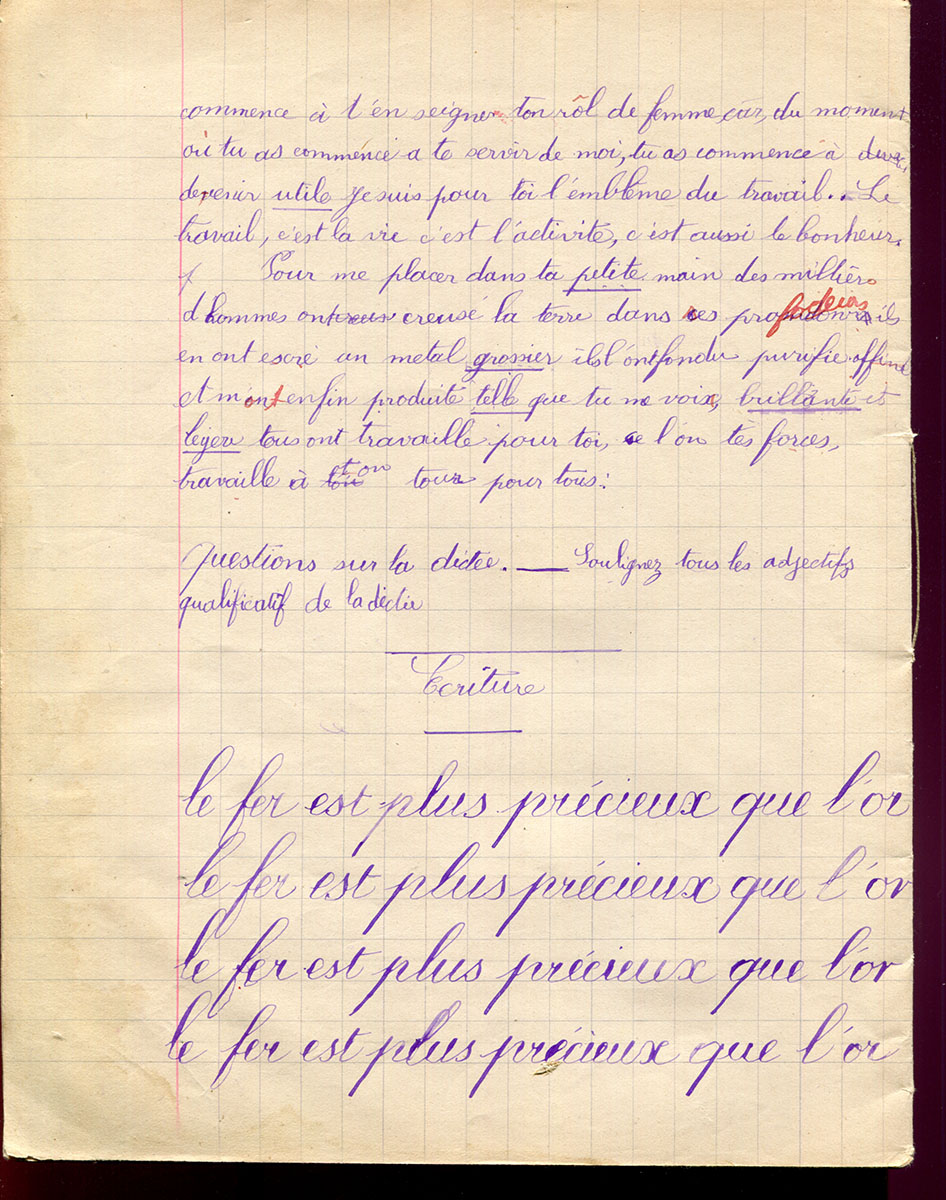 commence à t'en seigner ton rôl de femme, car, du moment
où tu as commencé a te servir de moi, tu as commencé à
devenir utile je suis pour toi l'émblême du travail.. Le
travail, c'est la vie c'est l'activité, c'est aussi le bonheur.
Pour me placer dans ta petite main des milliers
d'hommes ont creusé la terre dans ses ils
en ont escré un metal grossier ils l'ont fondu purifie affiné
et m'ont enfin produité telle que tu me vois, brillante et
légere tous ont travaillé pour toi, se l'on tès forces,
travaille à ton tour pour tous:
Questions sur la dictée. — Soulignez tous les adjectifs
qualificatif de la dictée
Ecriture
le fer est plus précieux que l'or
le fer est plus précieux que l'or
le fer est plus précieux que l'or
le fer est plus précieux que l'or